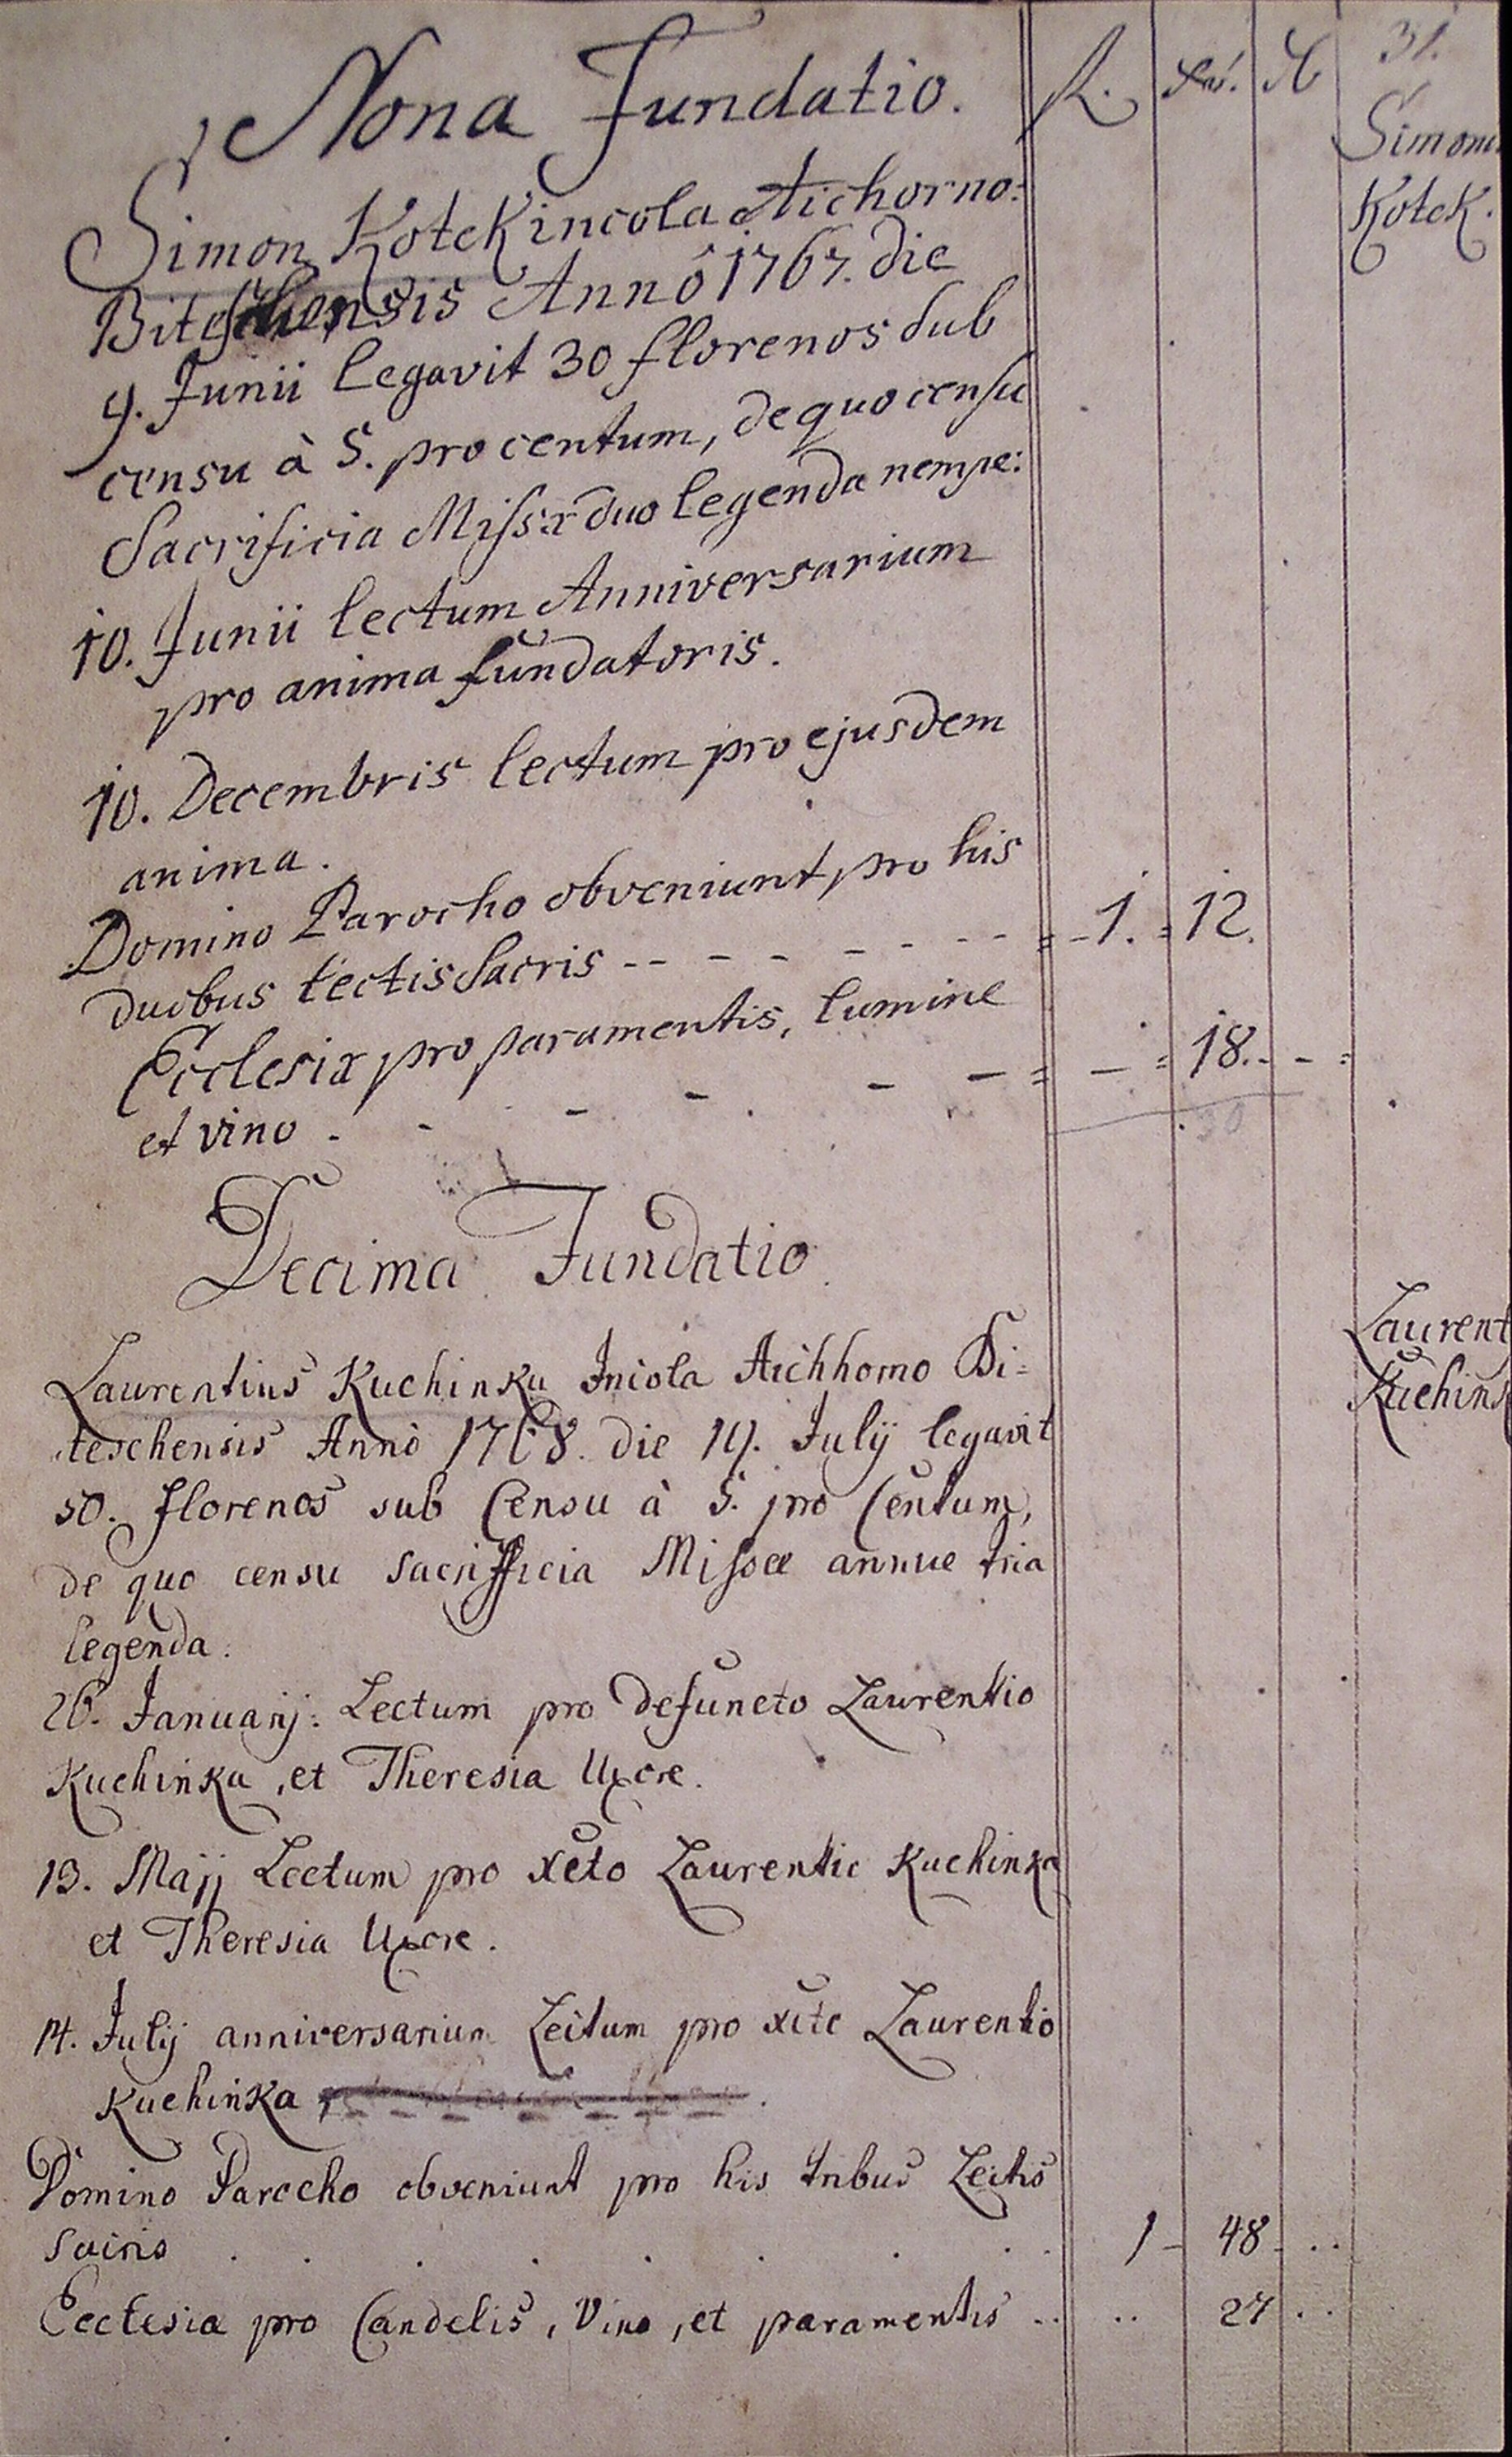 31.
fl. Xr. ₰
Nona Fundatio.
Simonis
Kotek.
Simon Kotek incola Aichorno=
Biteschensis Annô 1767. die
9. Junii legavit 30 florenos sub
censu à 5. pro centum, de quo censu
Sacrificia Missæ duo legenda nempe:
10. Junii lectum Anniversarium
pro anima fundatoris.
10. Decembris lectum pro ejusdem
anima.
Domino Parocho obveniunt pro his
duobus lectis Sacris - - - - - - - = - 1. = 12.
Ecclesiæ pro paramentis, lumine
et vino - - - - - - = - = 18. - - =
30
Decima Fundatio.
Laurent
Kuchink
Laurentius Kuchinka Incola Aichhorno Bi=
teschensis Annò 1768. die 14. Julij legavit
50. florenos sub Censu à 5. pro Centum,
de quo censu sacrifficia Missæ annue tria
legenda.
26. Januarij: Lectum pro defuncto Laurentio
Kuchinka, et Theresia Uxore.
13. Maji Lectum pro xcto Laurentio Kuchinka
et Theresia Uxore.
14. Julij anniversarium Lectum pro xcto Laurentio
Kuchinka
Domino Parocho obveniunt pro his tribus Lectis
Sacris . . . . . . . . 1 - 48 - . .
Ecclesiæ pro Candelis, Vino, et paramentis .. .. 27 . .